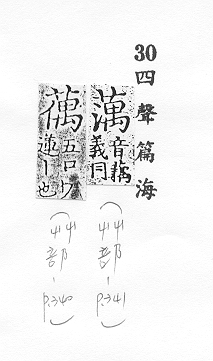 30 四聲篇海
音藕
義同
五口切
蓮丨也
(艸部-p.341)
(艸部-p.340)